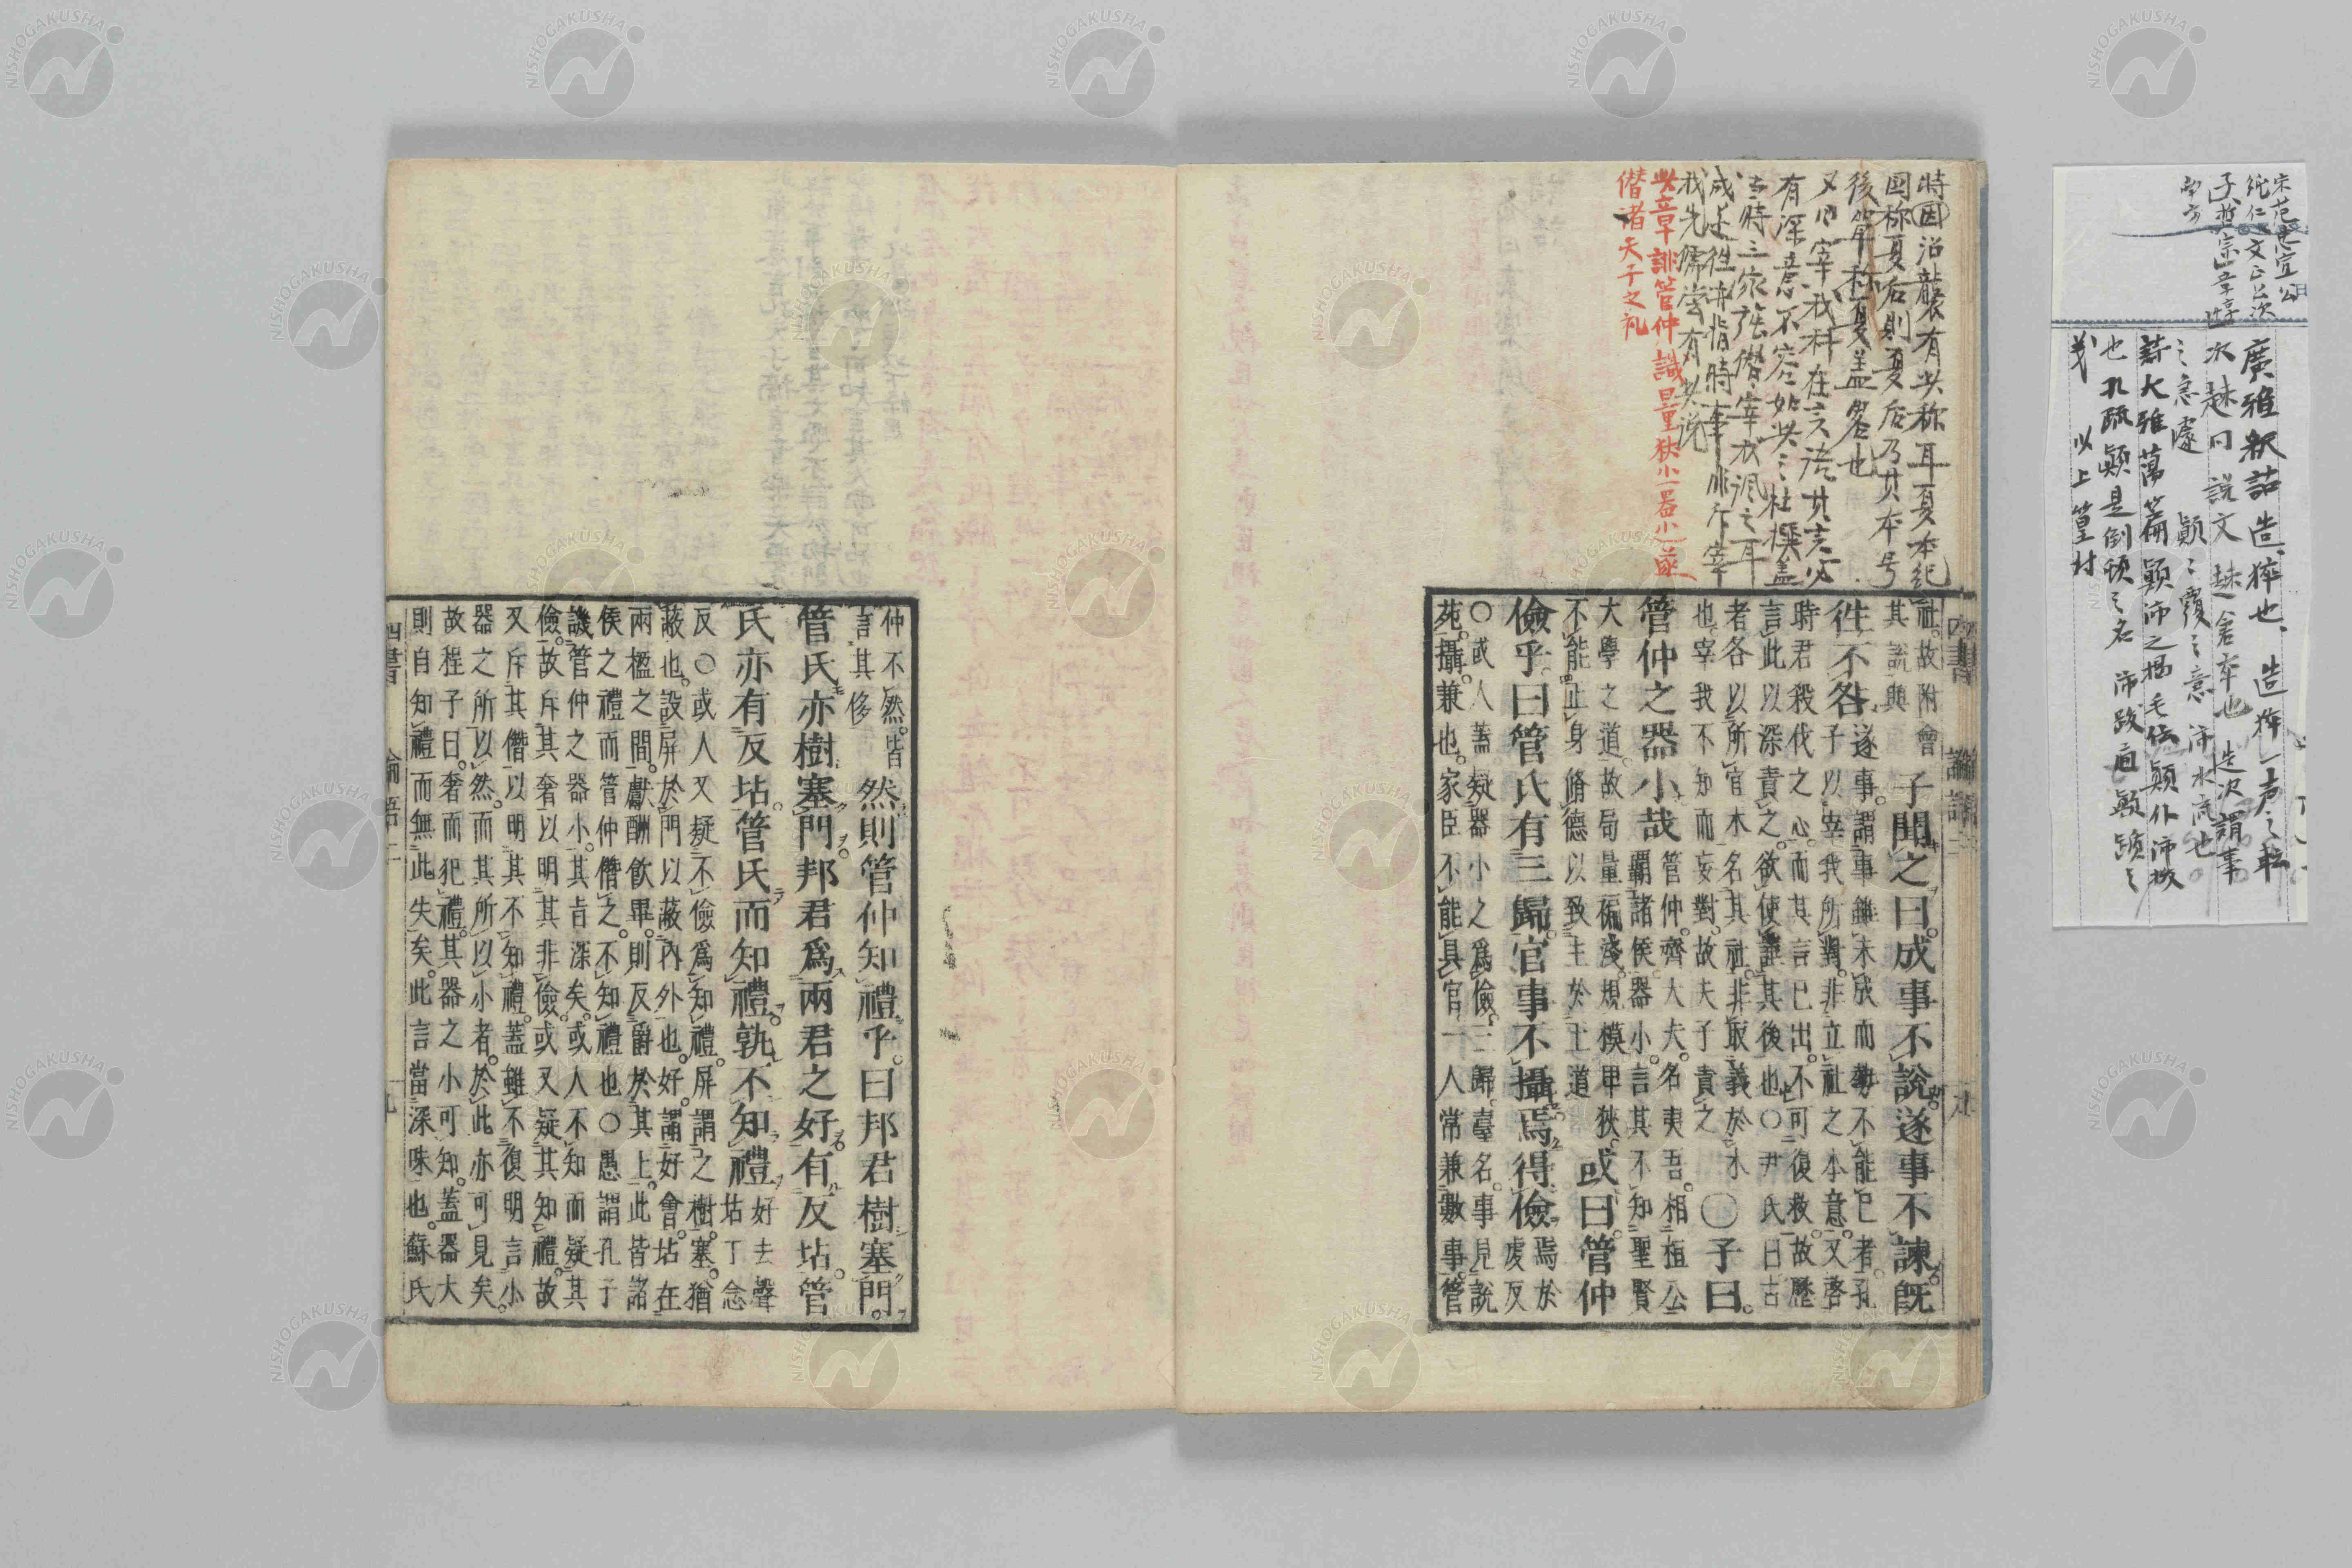 宋范忠宣公
純仁文正公次
子哲宗章惇
廣雅釈詁造猝也造猝一声之転
次趀同説文趀倉卒也造次謂事
之急遽 顛之覆之意沛水流也
蕩大雅蕩篇顛沛之揭毛伝顛仆沛拔
也孔疏顛是倒頓之名
義 以上篁村
時因沿襲有此称耳夏本紀
国称夏后則夏后乃其本号
後單称夏蓋畧也
又曰宰我科在言語其言必
有深意不容如此之杜撰蓋
此章誹管仲識量狭小器小遂
僭諸天子之礼
四書 論語二
社故附會
其說與
子聞之曰成事不說遂事不諫既
往不咎
遂事謂事雖未成而勢不能已者孔
子以宰我所對非立社之本意又啓
時君殺伐之心而其言已出不可復救故歷
言此以深責之欲使謹其後也〇尹氏曰古
者各以所宜木名其社非取義於木
也宰我不知而妄對故夫子責之
〇子曰
管仲之器小哉
管仲齊大夫名夷吾相桓公
霸諸侯器小言其不知聖賢
大學之道故局量褊淺規模卑狹
不能正身脩德以致主於王道
或曰管仲
儉乎曰管氏有三歸官事不攝焉得儉
焉於
虔反
〇或人蓋疑器小之爲儉三歸臺名事見說
苑攝兼也家臣不能具官一人常兼數事管
仲不然皆
言其侈
然則管仲知禮乎曰邦君樹塞門
管氏亦樹塞門邦君爲兩君之好有反坫管
氏亦有反坫管氏而知禮孰不知禮
好去聲
坫丁念
反〇或人又疑不儉爲知禮屏謂之樹塞猶
蔽也設屏於門以蔽內外也好謂好會坫在
兩楹之間獻酬飮畢則反爵於其上此皆諸
侯之禮而管仲僭之不知禮也〇愚謂孔子
譏管仲之器小其旨深矣或人不知而疑其
儉故斥其奢以明其非儉或又疑其知禮故
又斥其僭以明其不知禮蓋雖不復明言小
器之所以然而其所以小者於此亦可見矣
故程子曰奢而犯禮其器之小可知蓋器大
則自知禮而無此失矣此言當深味也蘇氏
四書 論語二 十九